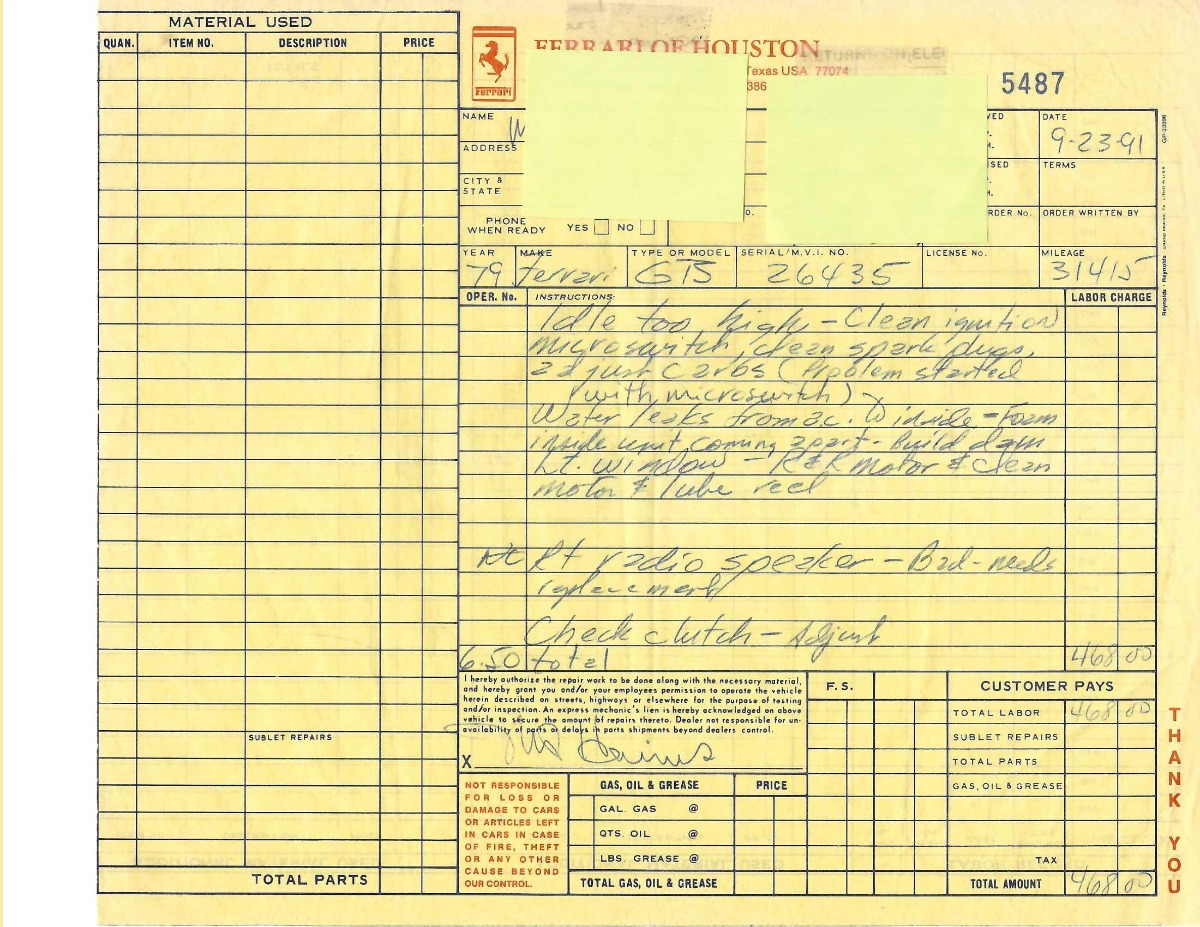 MATERIAL USED
QUAN. ITEM NO. DESCRIPTION PRICE
SUBLET REPAIRS
TOTAL PARTS
Ferrari
FERRARI OF HOUSTON
Texas USA 77074
386
RETURN ON ELE
5487
NAME
ADDRESS
CITY &
STATE
PHONE
WHEN READY YES NO
DATE
9-23-91
TERMS
RDER No. ORDER WRITTEN BY
YEAR MAKE TYPE OR MODEL SERIAL/M.V.I. NO. LICENSE No. MILEAGE
79 Ferrari GTB 26435 31415
OPER. No. INSTRUCTIONS: LABOR CHARGE
Idle too high - Clean ignition
microswitch, clean spark plugs,
adjust carbs (Problem started
with microswitch)
Water leaks from ac. inside - Foam
inside unit coming apart - Build dam
Lt. window - R&R motor & clean
motor & lube reel
Rt radio speaker - Bad - needs
replacement
Check clutch - Adjust
6.50 total 468 00
I hereby authorize the repair work to be done along with the necessary material,
and hereby grant you and/or your employees permission to operate the vehicle
herein described on streets, highways or elsewhere for the purpose of testing
and/or inspection. An express mechanic's lien is hereby acknowledged on above
vehicle to secure the amount of repairs thereto. Dealer not responsible for un-
availability of parts or delays in parts shipments beyond dealers control.
X
NOT RESPONSIBLE
FOR LOSS OR
DAMAGE TO CARS
OR ARTICLES LEFT
IN CARS IN CASE
OF FIRE, THEFT
OR ANY OTHER
CAUSE BEYOND
OUR CONTROL.
GAS, OIL & GREASE PRICE
GAL. GAS @
QTS. OIL @
LBS. GREASE @
TOTAL GAS, OIL & GREASE
F.S. CUSTOMER PAYS
TOTAL LABOR 468 00
SUBLET REPAIRS
TOTAL PARTS
GAS, OIL & GREASE
TAX
TOTAL AMOUNT 468 00
THANK YOU